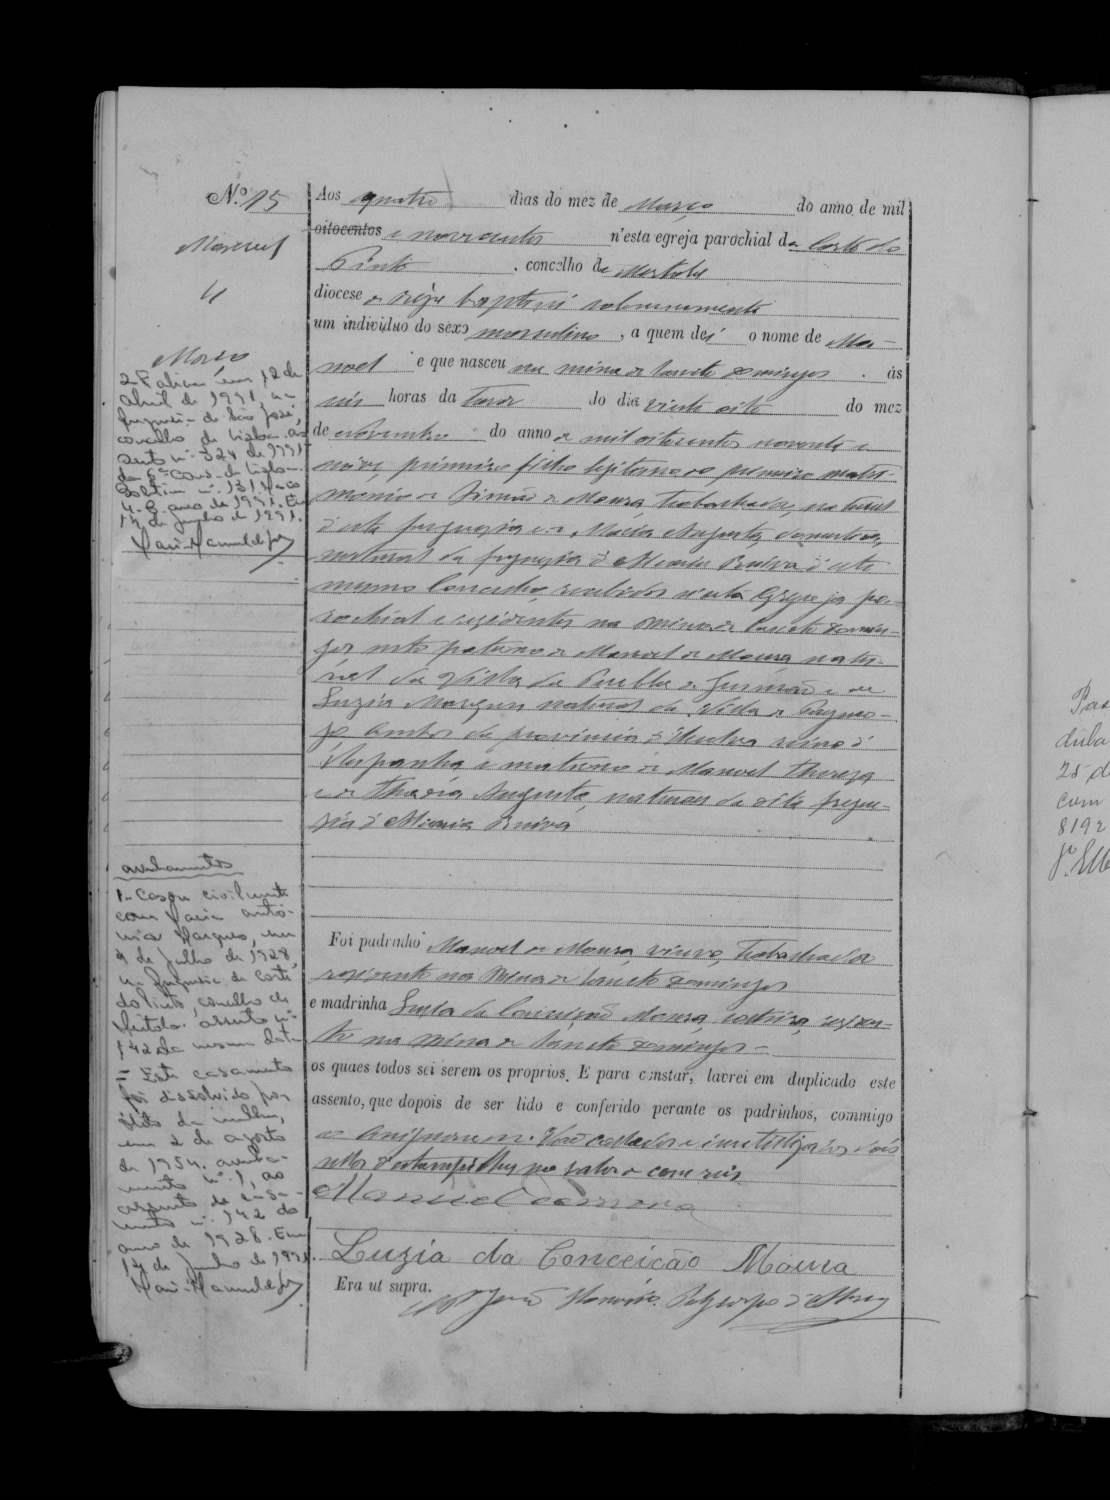 N.º 15
Manuel
4
Março
2- Faleceu em 12 de
abril de 1991 na
freguesia de São José,
concelho de Lisboa. as-
sento nº 324 de 1991
da 6ª Cons. de Lisboa.
Boletim nº 131 Maço
4-B ano de 1991. Em
14 de Junho de 1991.
averbamentos
1- Casou civilmente
com Maria antó-
nia Marques, em
9 de Julho de 1928,
na freguesia de Corte
do Pinto, concelho de
Mértola. assento nº
142 da mesma data
= Este casamento
foi dissolvido por
óbito da mulher,
em 2 de agosto
de 1954. averba-
mento nº 1, ao
assento de casa-
mento nº 142 do
ano de 1928. Em
14 de Junho de 1991.
Aos quatro dias do mez de Março do anno de mil
oitocentos e novecentos n'esta egreja parochial da Corte do
Pinto, concelho de Mertola
diocese de Beja baptisei solemnemente
um individuo do sexo masculino, a quem dei o nome de Ma-
noel e que nasceu na mina de Sancto Domingos ás
seis horas da tarde do dia vinte oito do mez
de Novembro do anno de mil oitocentos noventa e
nove, primeiro filho legitimo e do primeiro matri-
monio de Simão de Moura, trabalhador, natural
d'esta freguezia e de Maria Augusta, domestica,
natural da freguezia d' d'este
mesmo Concelho, recebidos n'esta Egreja pa-
rochial e residentes na Mina de Sancto Domin-
gos neto paterno de Manoel de Moura natu-
ral da Villa da Puebla de Gusmão e de
Luzia Marques natural da Villa de Paymo-
go ambos da provincia d'Huelva reino d'
Hespanha e materno de Manoel Thereza
e de Augusta, naturaes da dita fregue-
zia d'
Foi padrinho Manoel de Moura, viuvo, trabalhador
residente na Mina de Sancto Domingos
e madrinha Luzia da Conceição Moura, solteira, residen-
te na Mina de Sancto Domingos -
os quaes todos sei serem os proprios. E para constar, lavrei em duplicado este
assento, que depois de ser lido e conferido perante os padrinhos, commigo
o assignaram. Vão collados e inutilizados dois
sellos d'estampilha no valor de cem reis.
Manuel de Moura
Luzia da Conceição Moura
Era ut supra.
Pas
25 d
com
8192